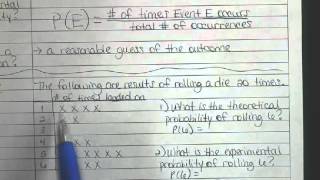 ity?
P(E) = # of times Event E occurs
total # of occurrences
→ a reasonable guess of the outcome
The following are results of rolling a die 20 times.
# of times landed on
1 X X X X
2 X
3
4
5 X X X X
6 X X X
1) What is the theoretical
probability of rolling 6?
P(6) =
2) What is the experimental
probability of rolling 6?
P(6) =